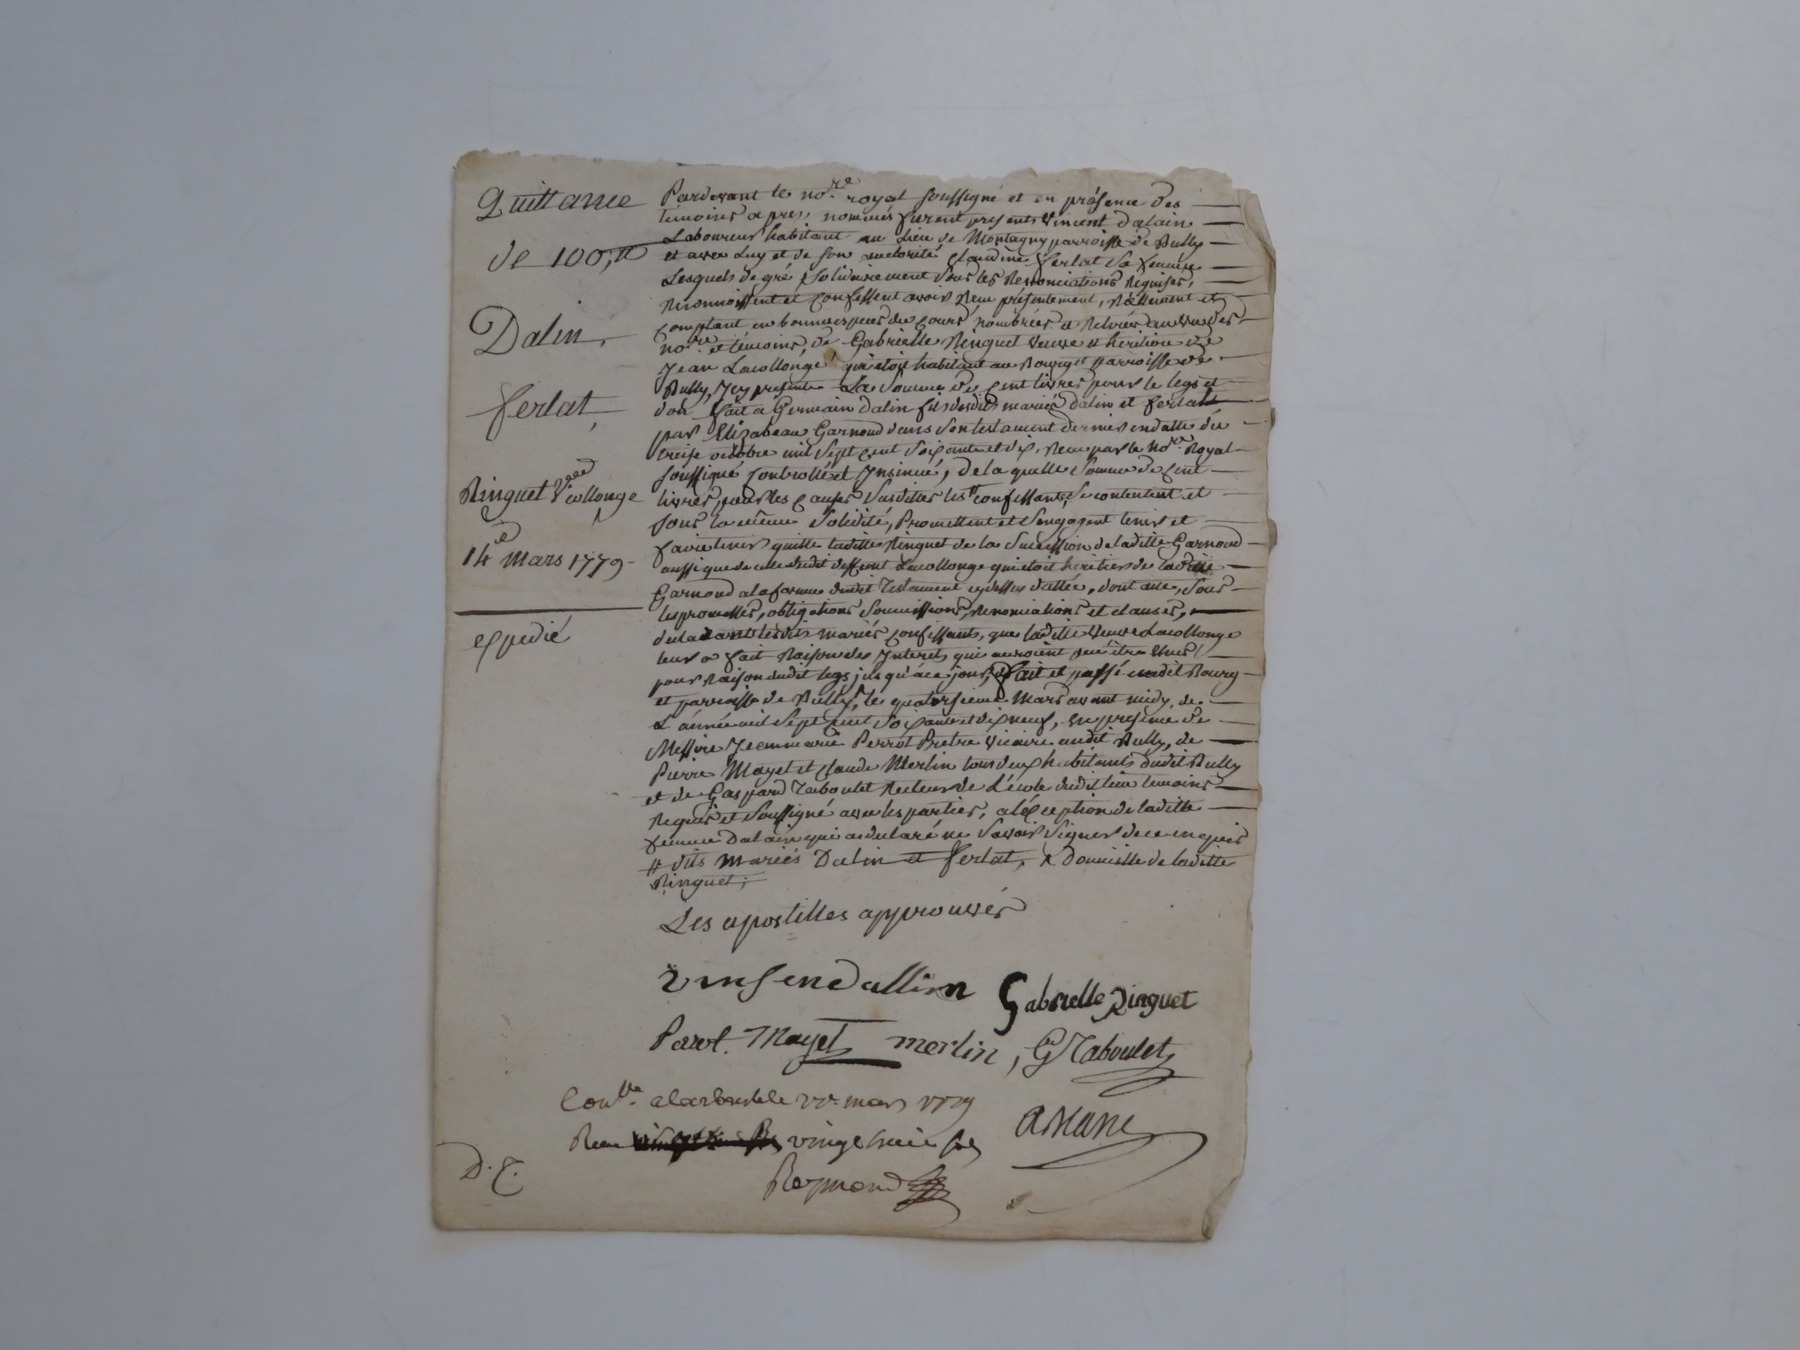 Quittance
de 100,tt
Dalin,
ferlat,
Ringuet Vve Collonge
14e mars 1779-
expedié
Pardevant le nore. royal soussigné et en présence des
témoins apres nommés furent presents Vincent Dalain
Laboureur habitant au Lieu de Montagny parroisse de Bully
et avec Luy et de son authorité Claudine ferlat Sa femme
Lesquels de gré, Solidairement Sous les Renonciations Requises,
Reconnoissent et Confessent avoir Receu présentement, Réellement et
Comptant en bonnes especes du Cours, nombrées et Retirées au vu des
nore. et témoins, de Gabrielle Ringuet veuve et heritiere de
Jean Lacollonge qui étoit habitant au Bourg et parroisse de
Bully, Icy presente La Somme de Cent livres pour le legs et
don fait a Germain Dalin fils desdits mariés Dalin et ferlat
par Elizabeau Garnoud dans son testament dernier en datte du
treise octobre mil Sept Cent Soixante et dix, Receu par le Nore Royal
soussigné Controllé et Insinué, de la quelle Somme de Cent
livres, pour les Causes Susdittes les # confessants, Se contentent et
sous la même Solidité, Promettent et S'engagent tenir et
faire tenir quitte laditte Ringuet de la Succession de laditte Garnoud
aussi que de celle dudit deffunt Lacollonge qui étoit heritier de laditte
Garnoud a la forme dudit Testament cy dessus datté, dont acte, Sous
les promesses, obligations Soumissions, Renonciations et clauses,
declarants lesdits mariés Confessants, que laditte veuve Lacollonge
leur a fait Raison des Interets qui auroient pu être dus
pour Raison dudit legs jusqu'à ce jour, X fait et passé audit Bourg
et parroisse de Bully, le quatorsieme Mars avant midy, de
L'année mil Sept Cent Soixante et dix neuf, en presence de
Messire Jeanmarie Perrot Prêtre Vicaire audit Bully, de
Pierre Mayet et Claude Merlin tous deux habitants dudit Bully
et de Gaspard Taboulet Recteur de L'école dudit lieu temoins
Requis et Soussigné avec les parties, a l'exception de laditte
femme Dalain qui a declaré ne Savoir Signer de ce enquis
# dits mariés Dalin et ferlat, X Domicille de laditte
Ringuet;
Les apostilles approuvés
vinsendallin Gabrielle Ringuet
Perrot. Mayet merlin, G Taboulet
Conlle. a Larbresle mars 1779
Receu vingt huit sols
Raymond
D. C.